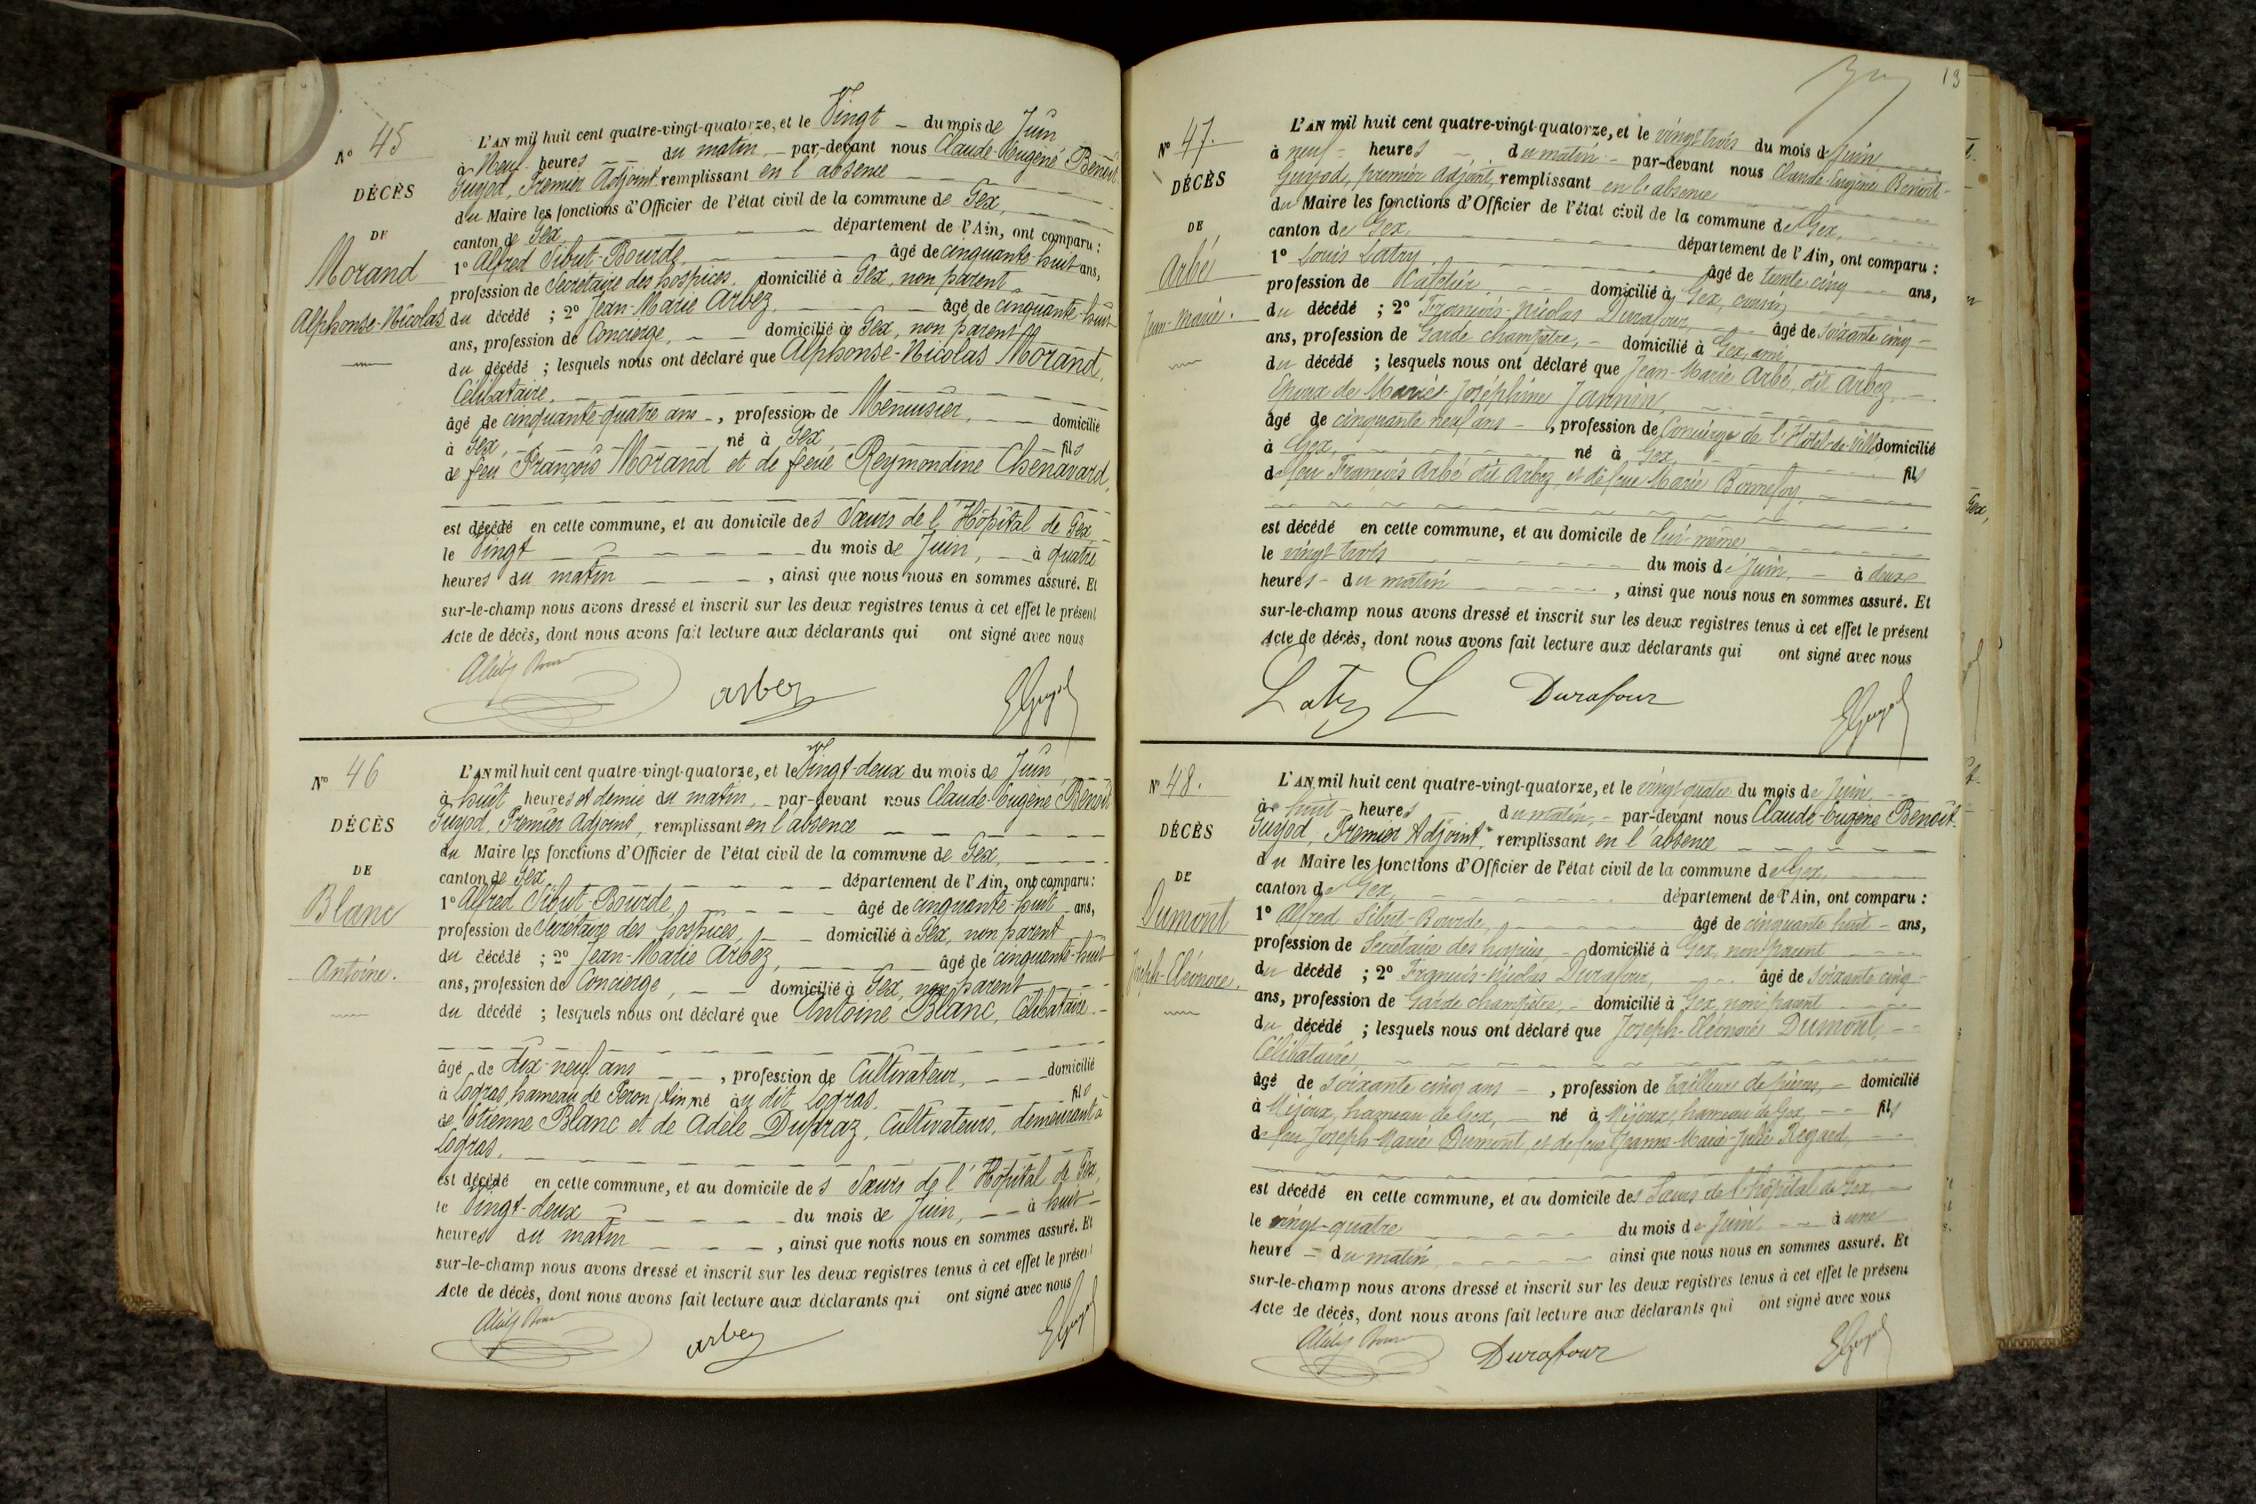 Nº 45
DÉCÈS
DE
Morand
Alphonse-Nicolas
L'AN mil huit cent quatre-vingt-quatorze, et le Vingt du mois de Juin
à Neuf heures du matin par-devant nous Claude-Eugène Benoit
Guyod, Premier Adjoint remplissant en l'absence
du Maire les fonctions d'Officier de l'état civil de la commune de Gex,
canton de Gex département de l'Ain, ont comparu :
1º Alfred Sibut-Bourde, âgé de cinquante-huit ans,
profession de Secrétaire des hospices, domicilié à Gex, non parent
du décédé ; 2º Jean-Marie Arbez, âgé de cinquante-huit
ans, profession de Concierge, domicilié à Gex, non parent
du décédé ; lesquels nous ont déclaré que Alphonse-Nicolas Morand,
Célibataire,
âgé de cinquante-quatre ans, profession de Menuisier, domicilié
à Gex, né à Gex, fils
de feu François Morand et de feue Reymondine Chenavard,
est décédé en cette commune, et au domicile des Sœurs de l'Hôpital de Gex,
le Vingt du mois de Juin, à quatre
heures du matin , ainsi que nous nous en sommes assuré. Et
sur-le-champ nous avons dressé et inscrit sur les deux registres tenus à cet effet le présent
Acte de décès, dont nous avons fait lecture aux déclarants qui ont signé avec nous
arbez EGuyod
Nº 46
DÉCÈS
DE
Blanc
Antoine.
L'AN mil huit cent quatre-vingt-quatorze, et le Vingt-deux du mois de Juin,
à huit heures et demie du matin, par-devant nous Claude-Eugène Benoit
Guyod, Premier Adjoint, remplissant en l'absence
du Maire les fonctions d'Officier de l'état civil de la commune de Gex,
canton de Gex département de l'Ain, ont comparu :
1º Alfred Sibut-Bourde, âgé de cinquante-huit ans,
profession de Secrétaire des hospices, domicilié à Gex, non parent
du décédé ; 2º Jean-Marie Arbez, âgé de cinquante-huit
ans, profession de Concierge, domicilié à Gex, non parent
du décédé ; lesquels nous ont déclaré que Antoine Blanc, Célibataire.
âgé de dix-neuf ans, profession de Cultivateur, domicilié
à Logras, hameau de Peron, né au dit Logras. fils
de Etienne Blanc et de Adèle Dupraz, Cultivateurs, demeurant à
Logras.
est décédé en cette commune, et au domicile des Sœurs de l'Hôpital de Gex,
le Vingt-deux du mois de Juin, à huit
heures du matin , ainsi que nous nous en sommes assuré. Et
sur-le-champ nous avons dressé et inscrit sur les deux registres tenus à cet effet le présent
Acte de décès, dont nous avons fait lecture aux déclarants qui ont signé avec nous
arbez EGuyod
13
Nº 47.
DÉCÈS
DE
Arbé
Jean-Marie.
L'AN mil huit cent quatre-vingt-quatorze, et le vingt-trois du mois de Juin
à neuf heures du matin par-devant nous Claude-Eugène Benoit
Guyod, premier Adjoint, remplissant en l'absence
du Maire les fonctions d'Officier de l'état civil de la commune de Gex,
canton de Gex, département de l'Ain, ont comparu :
1º Louis Latry, âgé de trente cinq ans,
profession de domicilié à Gex, cousin
du décédé ; 2º François-Nicolas Durafour, âgé de soixante cinq
ans, profession de Garde champêtre, domicilié à Gex, ami
du décédé ; lesquels nous ont déclaré que Jean-Marie Arbé, dit Arbez,
Epoux de Marie Joséphine Jannin,
âgé de cinquante neuf ans, profession de Concierge de l'Hôtel-de-Ville domicilié
à Gex, né à Gex, fils
de feu François Arbé dit Arbez et de feue Marie Bonnefoy,
est décédé en cette commune, et au domicile de lui-même
le vingt-trois du mois de Juin, à deux
heures du matin , ainsi que nous nous en sommes assuré. Et
sur-le-champ nous avons dressé et inscrit sur les deux registres tenus à cet effet le présent
Acte de décès, dont nous avons fait lecture aux déclarants qui ont signé avec nous
Latry L Durafour EGuyod
Nº 48.
DÉCÈS
DE
Dumont
Joseph-Eléonore.
L'AN mil huit cent quatre-vingt-quatorze, et le vingt-quatre du mois de Juin
à huit heures du matin, par-devant nous Claude-Eugène Benoit
Guyod, Premier Adjoint, remplissant en l'absence
du Maire les fonctions d'Officier de l'état civil de la commune de Gex,
canton de Gex, département de l'Ain, ont comparu :
1º Alfred Sibut-Bourde, âgé de cinquante huit ans,
profession de Secrétaire des hospices, domicilié à Gex, non parent
du décédé ; 2º François-Nicolas Durafour, âgé de soixante cinq
ans, profession de Garde champêtre, domicilié à Gex, non parent
du décédé ; lesquels nous ont déclaré que Joseph-Eléonore Dumont,
Célibataire,
âgé de soixante cinq ans, profession de tailleur de pierres, domicilié
à Mijoux, hameau de Gex, né à Mijoux, hameau de Gex, fils
de feu Joseph-Marie Dumont, et de feue Jeanne-Marie-Julie Regard,
est décédé en cette commune, et au domicile des Sœurs de l'hôpital de Gex,
le vingt-quatre du mois de Juin à une
heure du matin ainsi que nous nous en sommes assuré. Et
sur-le-champ nous avons dressé et inscrit sur les deux registres tenus à cet effet le présent
Acte de décès, dont nous avons fait lecture aux déclarants qui ont signé avec nous
Durafour EGuyod
Gex,